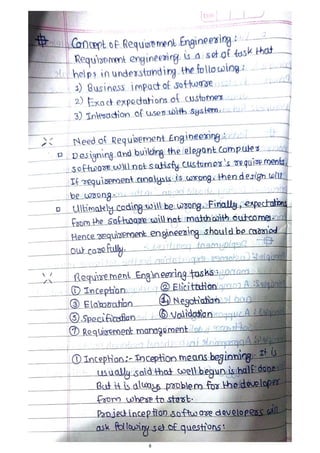 Concept of Requirement Engineering:
Requirement engineering is a set of task that
helps in understanding the following:
1) Business impact of software
2) Exact expectations of customer
3) Interaction of user with system.
Need of Requirement Engineering:
Designing and building the elegant computer
software will not satisfy customer's requirements
If requirement analysis is wrong, then design will
be wrong.
Ultimately coding will be wrong. Finally, expectations
from the software will not match with outcomes.
Hence requirement engineering should be carried
out carefully.
Requirement Engineering tasks:
① Inception ② Elicitation
③ Elaboration ④ Negotiation
⑤ Specification ⑥ Validation
⑦ Requirement management
① Inception:- Inception means beginning. It is
usually said that well begun is half done.
But it is always problem for the developer
from where to start.
Project inception software developers will
ask following set of questions: